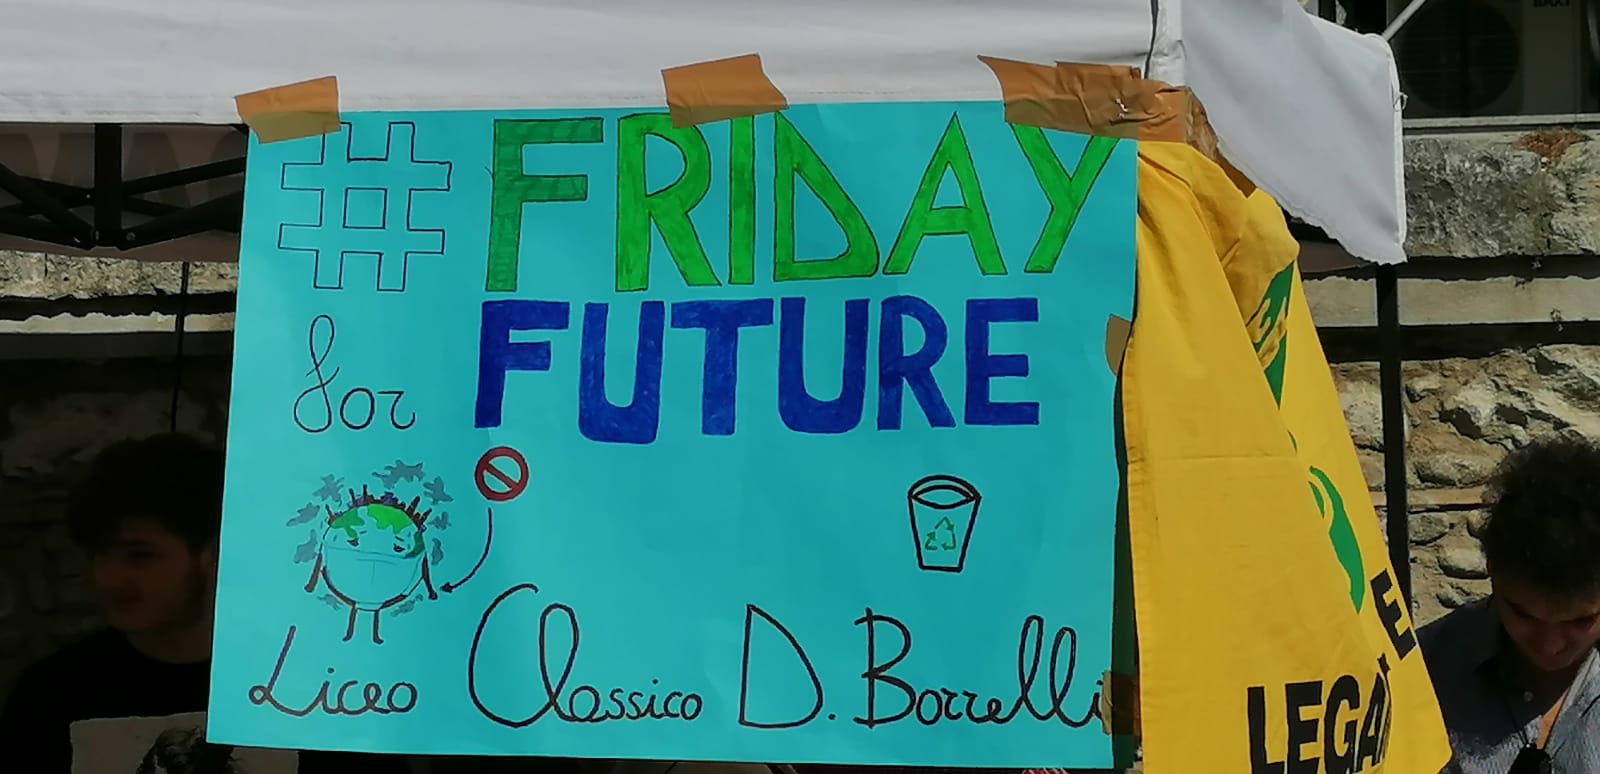 #FRIDAY
for FUTURE
Liceo Classico D. Borrelli